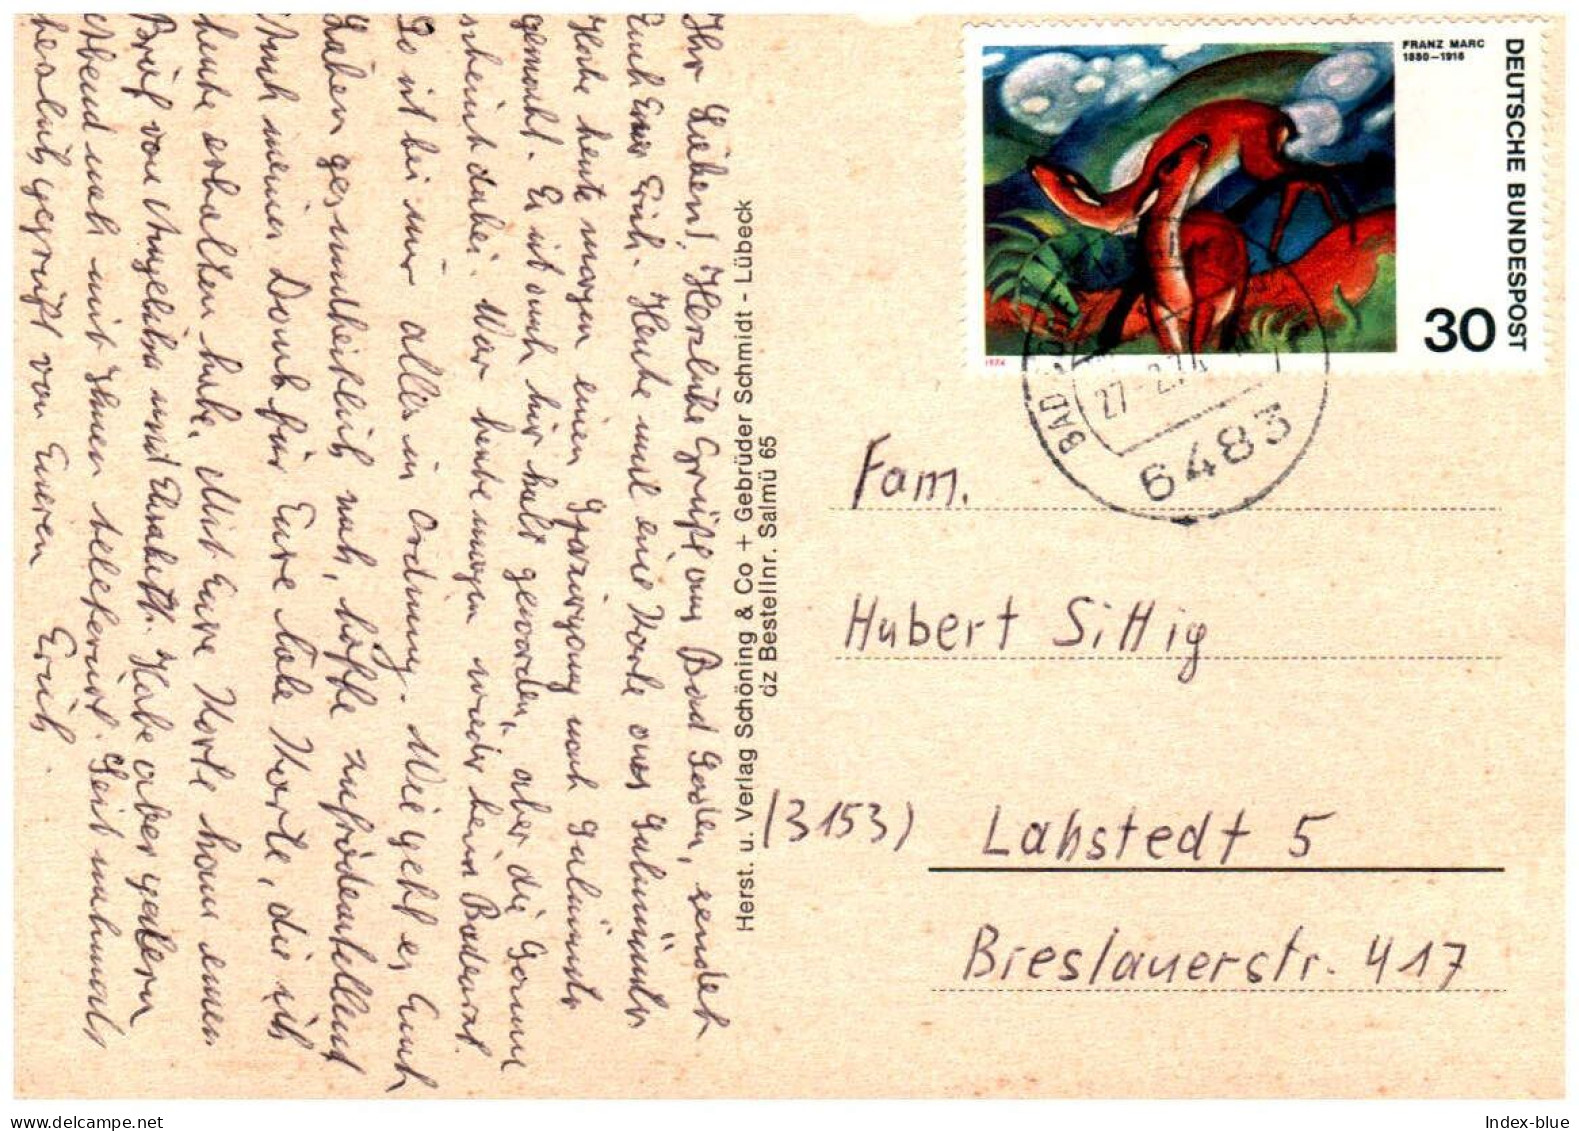 Ihr Lieben! Herzliche Grüße aus Bad Soden, sendet
Euch Euer Erich. Heute mal eine Karte aus Salmünster
Habe heute morgen einen Spaziergang nach Salmünster
gemacht. Es ist auch hier kalt geworden, aber die Sonne
scheint dabei. War heute morgen wieder beim Badearzt.
So ist bei mir alles in Ordnung. Wie geht es Euch
Lieben gesundheitlich noch, hoffe zufriedenstellend
Auch meinen Dank für Eure liebe Karte, die ich
heute erhalten habe. Mit Eure Karte kam einen
Brief von Angelika und Elisabeth. Habe aber gestern
Abend noch mit Ihnen telefoniert. Seit nochmals
herzlich gegrüßt von Eueren Erich.
Herst. u. Verlag Schöning & Co + Gebrüder Schmidt - Lübeck
dz Bestellnr. Salmü 65
FRANZ MARC
1880–1916
DEUTSCHE BUNDESPOST
30
1974
BAD
27.-2.7
6483
Fam.
Hubert Sittig
(3153) Lahstedt 5
Breslauerstr. 417
Index-blue
delcampe.net